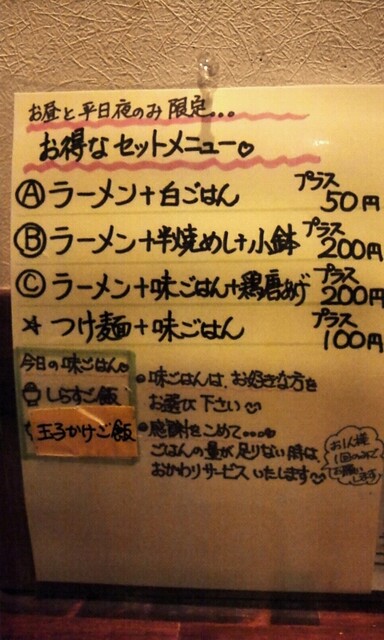 お昼と平日夜のみ限定...
お得なセットメニュー♡
Ⓐラーメン+白ごはん プラス50円
Ⓑラーメン+半焼めし+小鉢 プラス200円
Ⓒラーメン+味ごはん+鶏唐あげ プラス200円
☆つけ麺+味ごはん プラス100円
今日の味ごはん♡
しらすご飯
玉子かけご飯
●味ごはんは、お好きな方を
お選び下さい
●感謝をこめて....
ごはんの量が足りない時は、
おかわりサービスいたします
お1人様
1回のみで
お願い
します